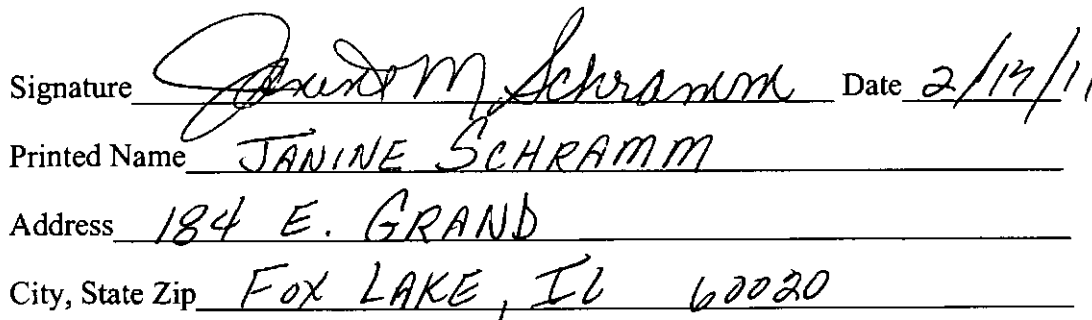 Signature Janine M Schramm Date 2/17/11
Printed Name JANINE SCHRAMM
Address 184 E. GRAND
City, State Zip FOX LAKE, IL 60020